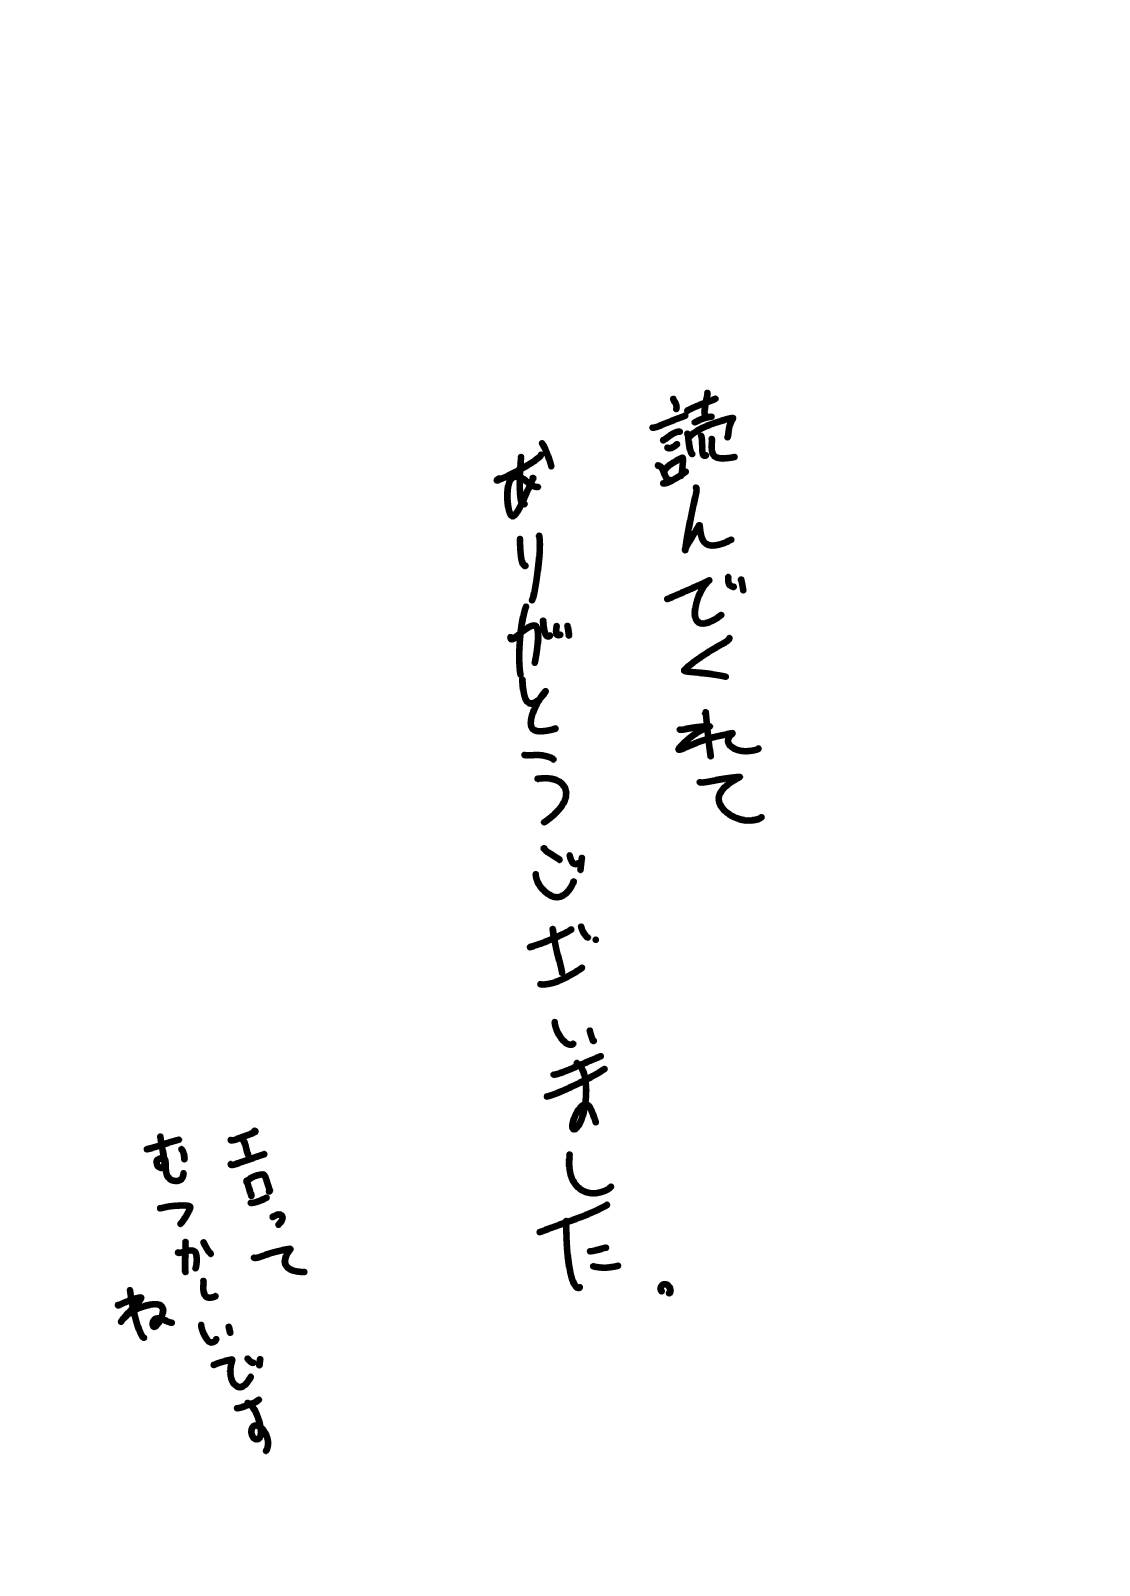 読んでくれて
ありがとうございました。
エロって
むつかしいです
ね